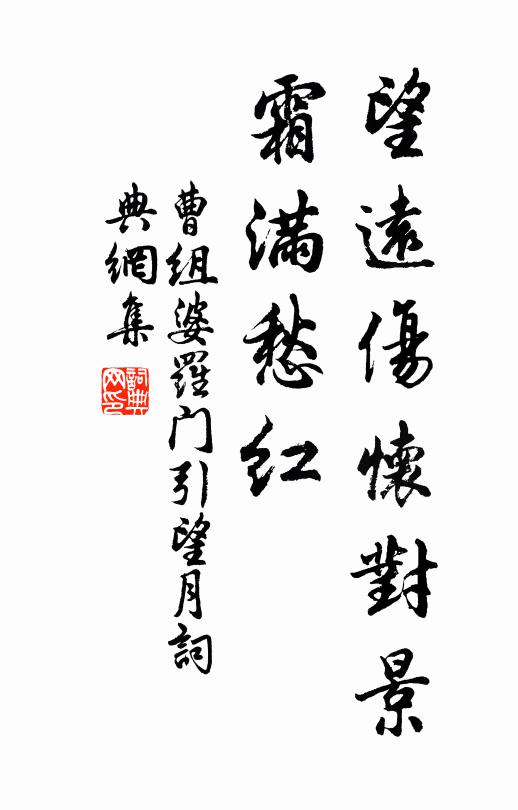 望遠傷懷對景
霜滿愁紅
曹組婆羅門引望月詞
典網集
詞典
网印